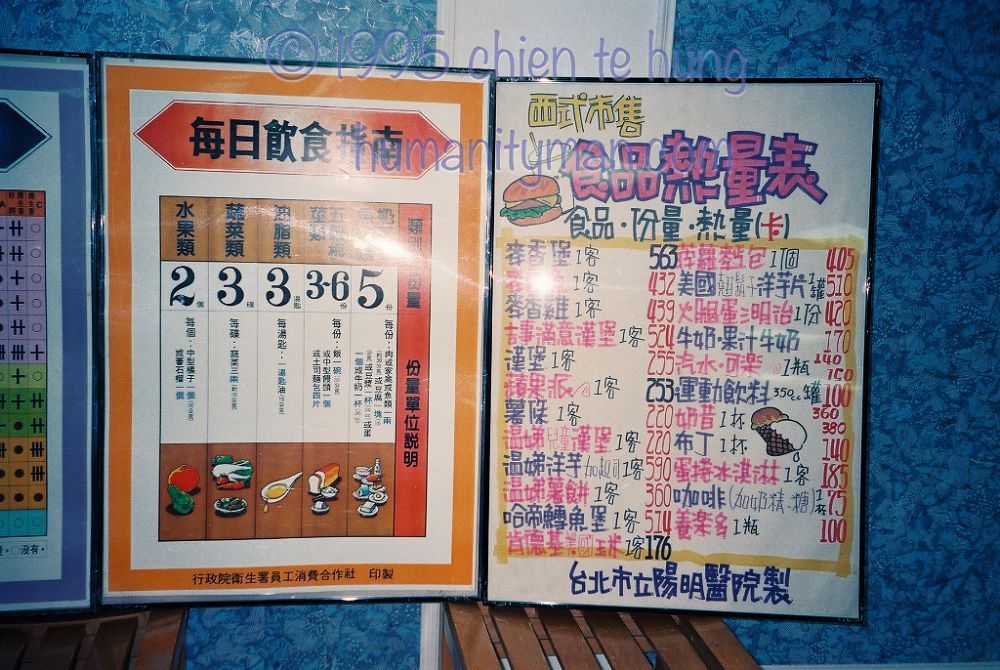 © 1995 chien te hung
每日飲食指南
類別
份量
份量單位說明
水果類
2個
每個：中型橘子一個
或蕃石榴一個
蔬菜類
3碟
每碟：蔬菜三兩
油脂類
3湯匙
每湯匙：一湯匙油
3-6份
每份：飯一碗
或中型饅頭一個
或土司麵包四片
5份
每份：肉或家禽或魚類一兩
或豆腐一塊
或豆漿一杯
或蛋一個或牛奶一杯
行政院衛生署員工消費合作社 印製
西式市售
食品熱量表
食品·份量·熱量(卡)
麥香堡1客 563
1客 432
麥香雞1客 439
吉事滿意漢堡1客 524
漢堡1客 255
蘋果派1客 253
薯條1客 220
溫娣兒童漢堡1客 220
溫娣洋芋加起司1客 590
溫娣薯餅1客 360
哈帝鱈魚堡1客 514
肯德基美國玉球1客 176
菠蘿麵包1個 405
美國翹鬍子洋芋片1罐 510
火腿蛋三明治1份 420
牛奶·果汁牛奶 170
汽水·可樂1瓶 140 150
運動飲料350cc罐 100
奶昔1杯 360 380
布丁1杯 140
蛋捲冰淇淋1客 185
咖啡(加奶精、糖)1杯 75
養樂多1瓶 100
台北市立陽明醫院製